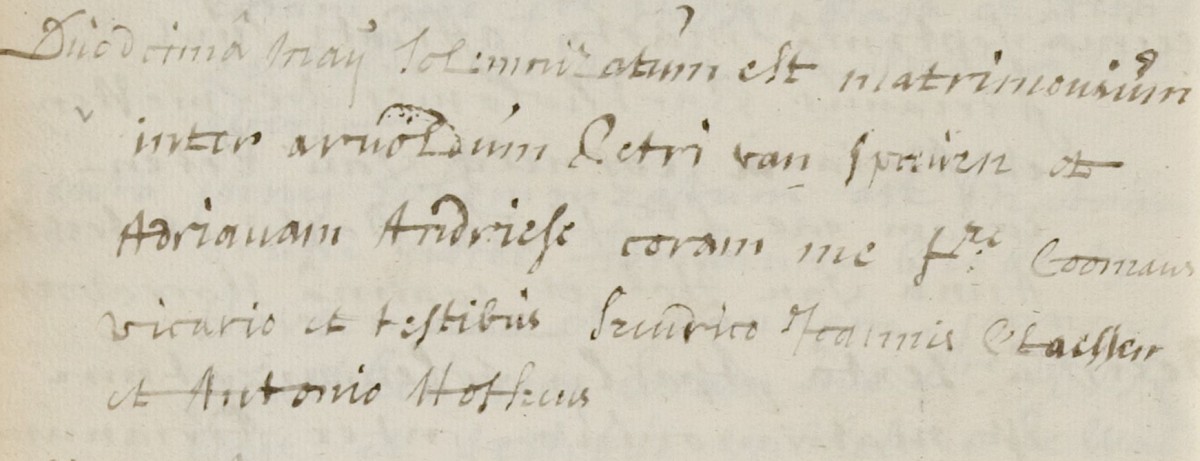 Duodcima maÿ solemnizatum est matrimonium
inter arnoldum Petri van spauen et
Adrianam Andriese coram me fre Coomans
vicario et testibus henrico Joannis Claessen
et Antonio